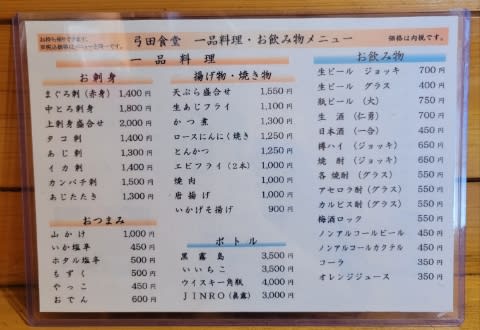 お持ち帰りできます。
※税込価格はメニューと同一です。
弓田食堂 一品料理・お飲み物メニュー
価格は内税です。
一品料理
お刺身
まぐろ刺(赤身) 1,400円
中とろ刺身 1,800円
上刺身盛合せ 2,000円
タコ刺 1,400円
あじ刺 1,300円
イカ刺 1,400円
カンパチ刺 1,500円
あじたたき 1,300円
おつまみ
山かけ 1,000円
いか塩辛 450円
ホタル塩辛 500円
もずく 500円
やっこ 450円
おでん 600円
揚げ物・焼き物
天ぷら盛合せ 1,550円
生あじフライ 1,100円
かつ煮 1,300円
ロースにんにく焼き 1,250円
とんかつ 1,250円
エビフライ(2本) 1,000円
焼肉 1,000円
唐揚げ 1,000円
いかげそ揚げ 900円
ボトル
黒霧島 3,500円
いいちこ 3,500円
ウイスキー角瓶 4,000円
JINRO(眞露) 3,000円
お飲み物
生ビール ジョッキ 700円
生ビール グラス 400円
瓶ビール(大) 750円
生酒(仁勇) 700円
日本酒(一合) 450円
樽ハイ(ジョッキ) 650円
焼酎(ジョッキ) 650円
各焼酎(グラス) 550円
アセロラ酎(グラス) 550円
カルピス酎(グラス) 550円
梅酒ロック 550円
ノンアルコールビール 450円
ノンアルコールカクテル 450円
コーラ 350円
オレンジジュース 350円